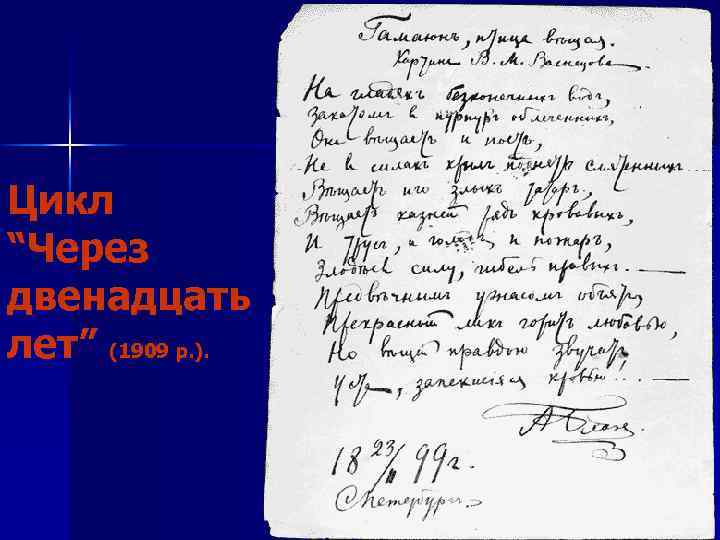 Цикл
“Через
двенадцать
лет” (1909 р.).
Гамаюнъ, птица вѣщая.
Картина В. М. Васнецова
На гладяхъ безконечныхъ водъ,
Закатомъ в пурпуръ облеченныхъ,
Она вѣщаетъ и поетъ,
Не в силахъ крылъ поднять смятенныхъ
Вѣщаетъ иго злыхъ татаръ,
Вѣщаетъ казней рядъ кровавыхъ,
И трусъ, и голодъ, и пожаръ,
Злодѣевъ силу, гибель правыхъ.
Предвѣчнымъ ужасомъ объятъ,
Прекрасный ликъ горитъ любовью,
Но вѣщей правдою звучатъ
Уста, запекшіяся кровью...
АБлокъ
18 23/II 99 г.
С.Петербургъ.